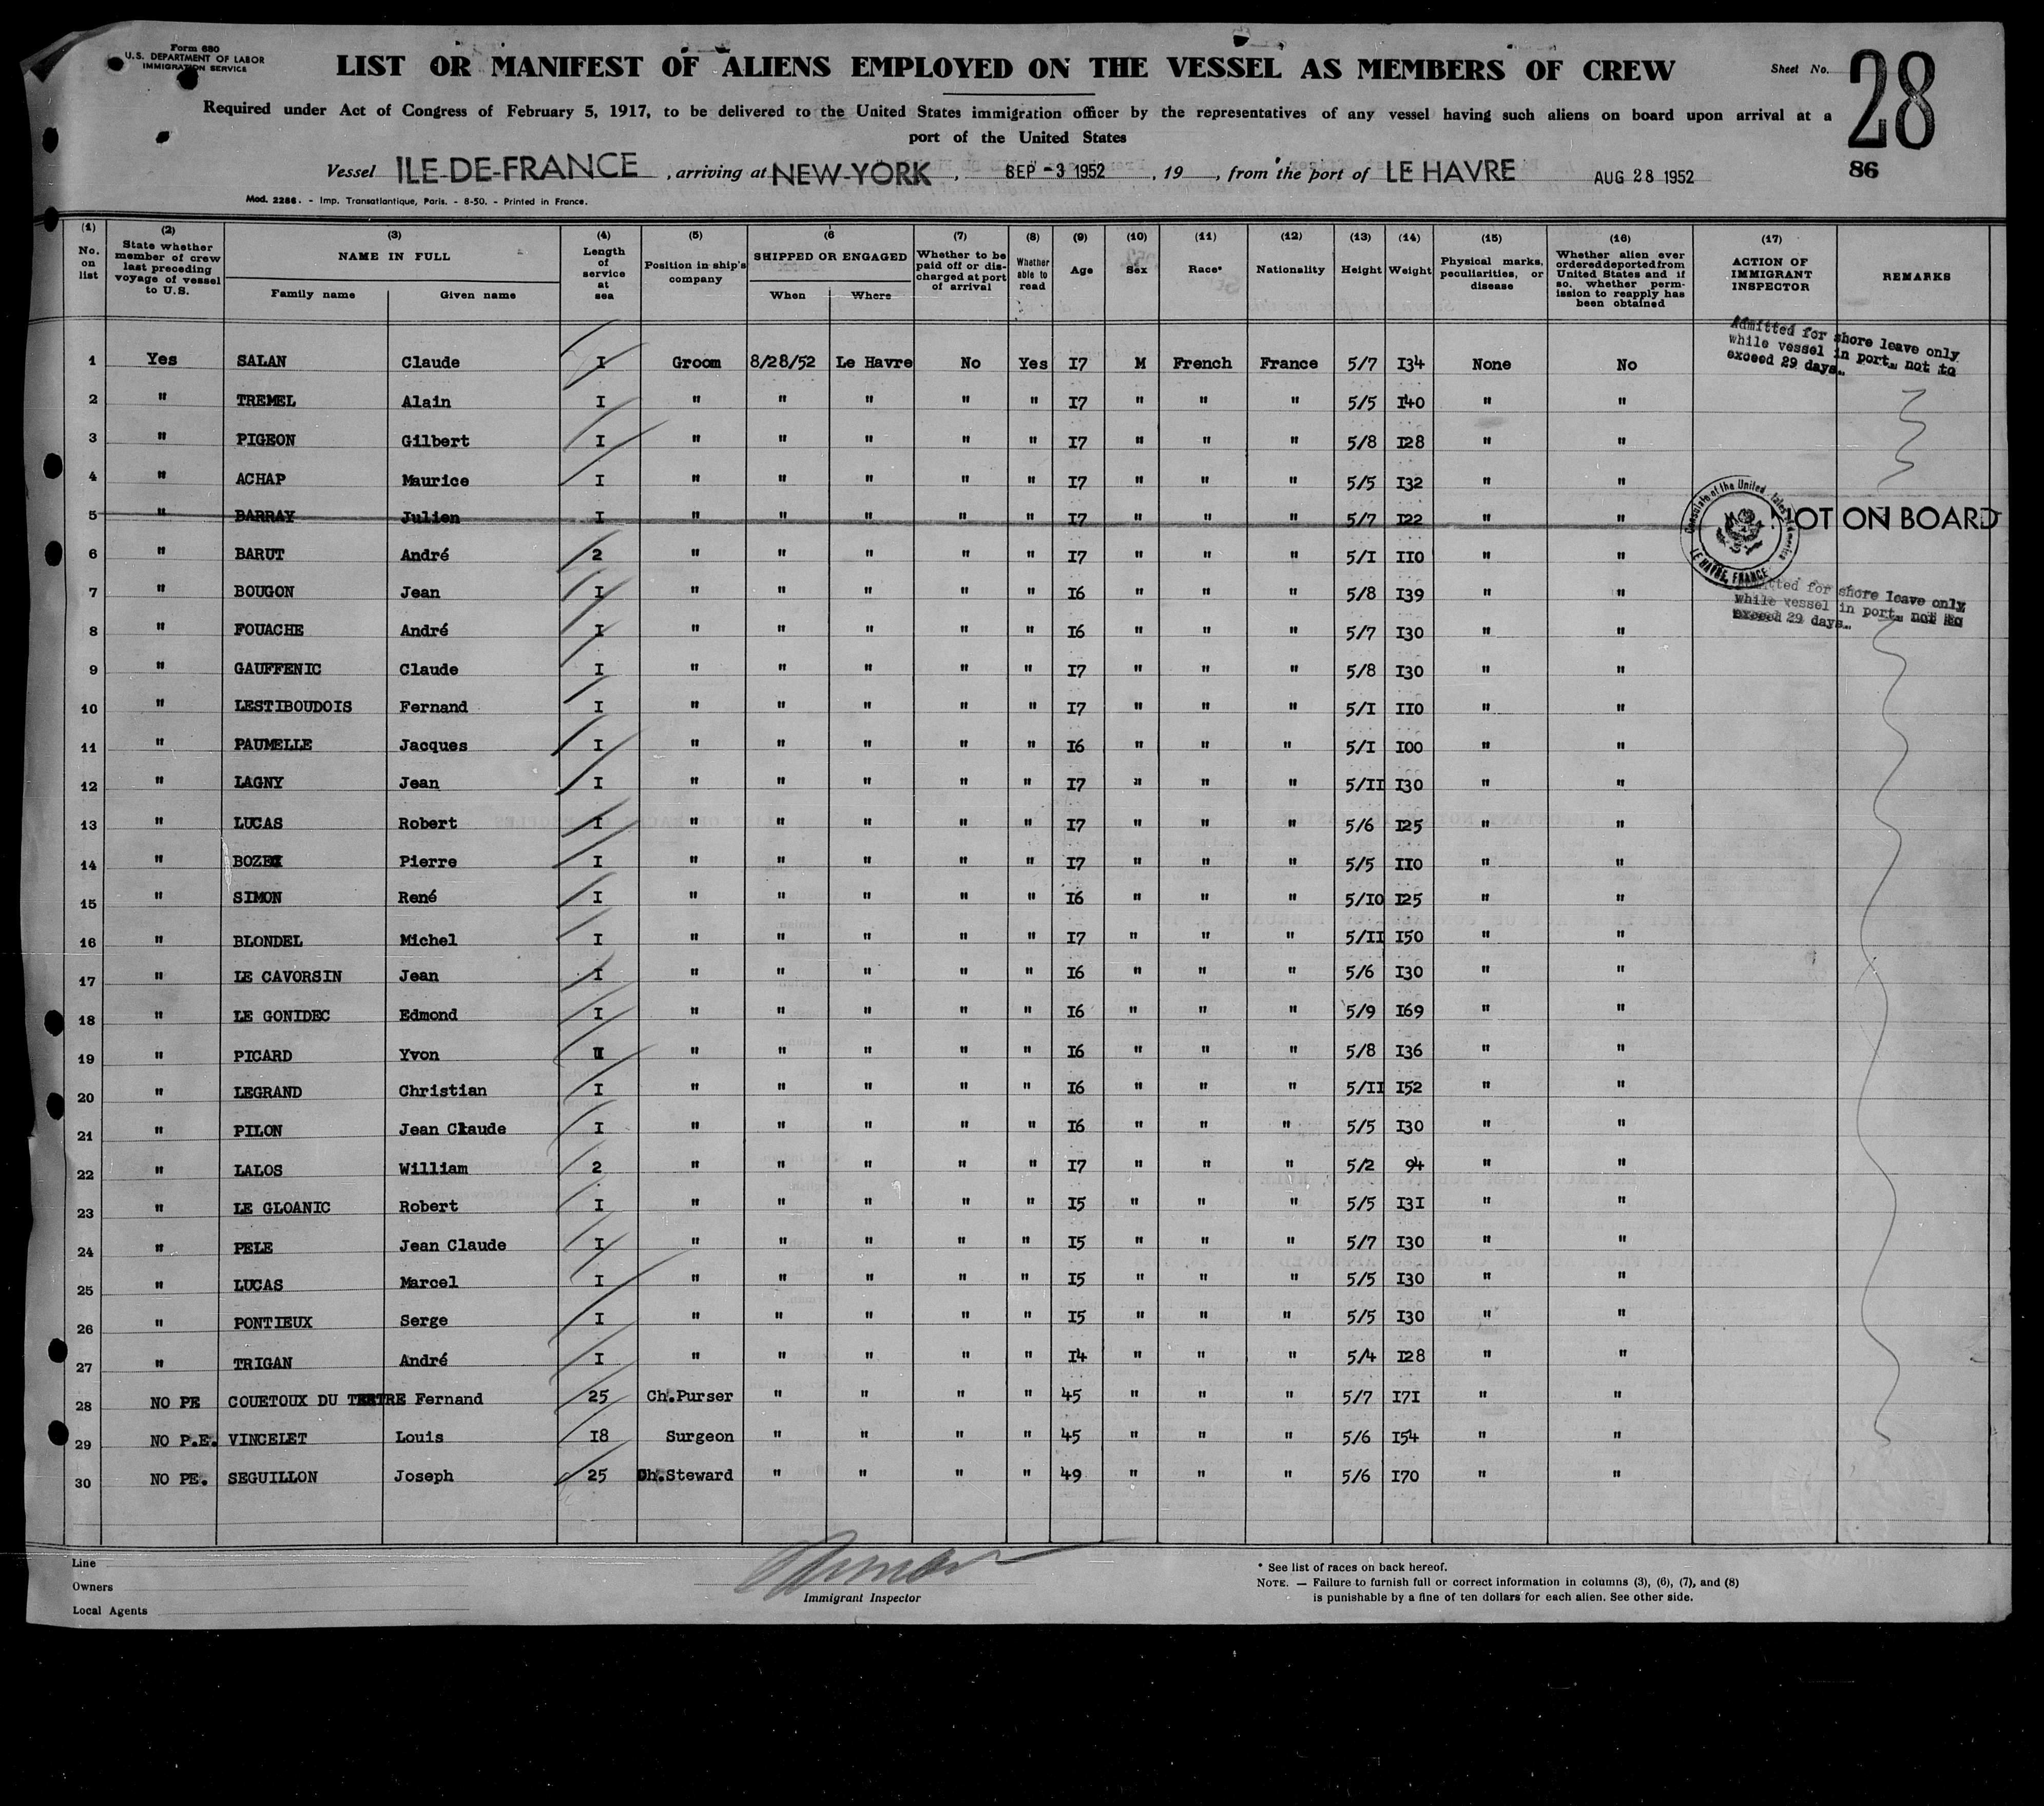 Form 680
U.S. DEPARTMENT OF LABOR
IMMIGRATION SERVICE
LIST OR MANIFEST OF ALIENS EMPLOYED ON THE VESSEL AS MEMBERS OF CREW
Sheet No. 28
Required under Act of Congress of February 5, 1917, to be delivered to the United States immigration officer by the representatives of any vessel having such aliens on board upon arrival at a
port of the United States
86
Vessel ILE-DE-FRANCE, arriving at NEW-YORK, SEP -3 1952, 19 , from the port of LE HAVRE AUG 28 1952
Mod. 2286. - Imp. Transatlantique, Paris. - 8-50. - Printed in France.
(1) No. on list
(2) State whether member of crew last preceding voyage of vessel to U.S.
(3) NAME IN FULL Family name Given name
(4) Length of service at sea
(5) Position in ship's company
(6 SHIPPED OR ENGAGED When Where
(7) Whether to be paid off or discharged at port of arrival
(8) Whether able to read
(9) Age
(10) Sex
(11) Race*
(12) Nationality
(13) Height
(14) Weight
(15) Physical marks, peculiarities, or disease
(16) Whether alien ever ordered deported from United States and if so, whether permission to reapply has been obtained
(17) ACTION OF IMMIGRANT INSPECTOR
REMARKS
Admitted for shore leave only
while vessel in port, not to
exceed 29 days.
1 Yes SALAN Claude I Groom 8/28/52 Le Havre No Yes 17 M French France 5/7 134 None No
2 " TREMEL Alain I " " " " " 17 " " " 5/5 140 " "
3 " PIGEON Gilbert I " " " " " 17 " " " 5/8 128 " "
4 " ACHAP Maurice I " " " " " 17 " " " 5/5 132 " "
5 " BARRAY Julien I " " " " " 17 " " " 5/7 122 " " NOT ON BOARD
Consulate of the United States of America
LE HAVRE, FRANCE
6 " BARUT André 2 " " " " " 17 " " " 5/1 110 " "
7 " BOUGON Jean I " " " " " 16 " " " 5/8 139 " "
Admitted for shore leave only
while vessel in port, not to
exceed 29 days.
8 " FOUACHE André I " " " " " 16 " " " 5/7 130 " "
9 " GAUFFENIC Claude I " " " " " 17 " " " 5/8 130 " "
10 " LESTIBOUDOIS Fernand I " " " " " 17 " " " 5/1 110 " "
11 " PAUMELLE Jacques I " " " " " 16 " " " 5/1 100 " "
12 " LAGNY Jean I " " " " " 17 " " " 5/11 130 " "
13 " LUCAS Robert I " " " " " 17 " " " 5/6 125 " "
14 " BOZEC Pierre I " " " " " 17 " " " 5/5 110 " "
15 " SIMON René I " " " " " 16 " " " 5/10 125 " "
16 " BLONDEL Michel I " " " " " 17 " " " 5/11 150 " "
17 " LE CAVORSIN Jean I " " " " " 16 " " " 5/6 130 " "
18 " LE GONIDEC Edmond I " " " " " 16 " " " 5/9 169 " "
19 " PICARD Yvon I " " " " " 16 " " " 5/8 136 " "
20 " LEGRAND Christian I " " " " " 16 " " " 5/11 152 " "
21 " PILON Jean Claude I " " " " " 16 " " " 5/5 130 " "
22 " LALOS William 2 " " " " " 17 " " " 5/2 94 " "
23 " LE GLOANIC Robert I " " " " " 15 " " " 5/5 131 " "
24 " PELE Jean Claude I " " " " " 15 " " " 5/7 130 " "
25 " LUCAS Marcel I " " " " " 15 " " " 5/5 130 " "
26 " PONTIEUX Serge I " " " " " 15 " " " 5/5 130 " "
27 " TRIGAN André I " " " " " 14 " " " 5/4 128 " "
28 NO PE COUETOUX DU TERTRE Fernand 25 Ch.Purser " " " " 45 " " " 5/7 171 " "
29 NO P.E. VINCELET Louis 18 Surgeon " " " " 45 " " " 5/6 154 " "
30 NO PE. SEGUILLON Joseph 25 Ch.Steward " " " " 49 " " " 5/6 170 " "
Line
Owners
Local Agents
Immigrant Inspector
* See list of races on back hereof.
NOTE. — Failure to furnish full or correct information in columns (3), (6), (7), and (8)
is punishable by a fine of ten dollars for each alien. See other side.